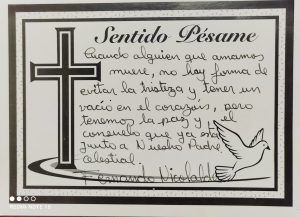 Sentido Pésame
Cuando alguien que amamos
muere, no hay forma de
evitar la tristeza y tener un
vacío en el corazón, pero
tenemos la paz y el
consuelo que ya está
Junto a Nuestro Padre
celestial.
Fernando Nicolalde
REDMI NOTE 10